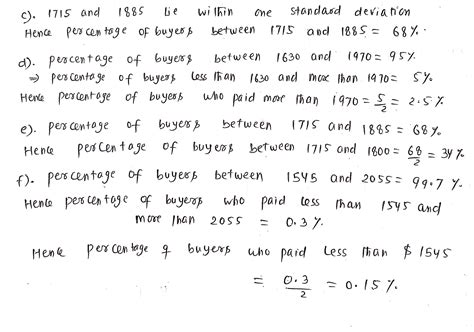 c). 1715 and 1885 lie within one standard deviation
Hence percentage of buyers between 1715 and 1885 = 68%.
d). percentage of buyers between 1630 and 1970 = 95%.
⇒ percentage of buyers less than 1630 and more than 1970 = 5%
Hence percentage of buyers who paid more than 1970 = 5/2 = 2.5%
e). percentage of buyers between 1715 and 1885 = 68%
Hence percentage of buyers between 1715 and 1800 = 68/2 = 34%
f). percentage of buyers between 1545 and 2055 = 99.7%
Hence percentage of buyers who paid less than 1545 and
more than 2055 = 0.3%.
Hence percentage of buyers who paid less than $ 1545
= 0.3/2 = 0.15%.